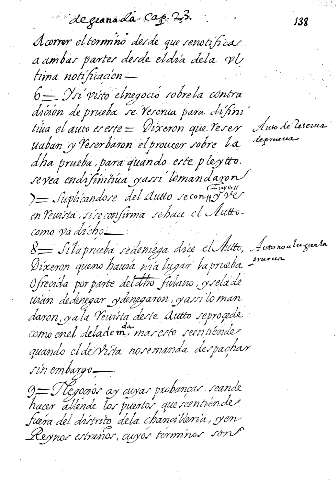 de granada cap. 23.
138
A correr el termino desde que se notifica
a ambas partes desde el dia de la ul
tima notificacion
6 = Y si visto el negoçio sobre la contra
dicion de prueba se reserva para difini
tiua el auto es este = Dixeron que reser
uaban y reserbaron el proueer sobre la
dha prueba, para quando este pleytto
se vea en difinitiua, y assi lo mandaron
Auto de reserua
de prueua
7 = Suplicandose del Autto se
en reuista, si se confirma se hace el Autto
como va dicho
8 = Si la prueba se deniega dice el Autto,
Dixeron que no hauia lugar la prueba
Ofrecida por parte del dho fulano, y se la de
uian denegar y denegaron, y assi lo man
daron, y a la reuista deste Autto se procede
como en el de la dem.da mas esto se entiende
quando el de vista no se manda despachar
sin embargo
9 = Negocios ay cuyas probanças, se an de
hacer allende los puertos que se entiende
fuera del distrito de la chançilleria, y en
Reynos estraños, cuyos terminos son